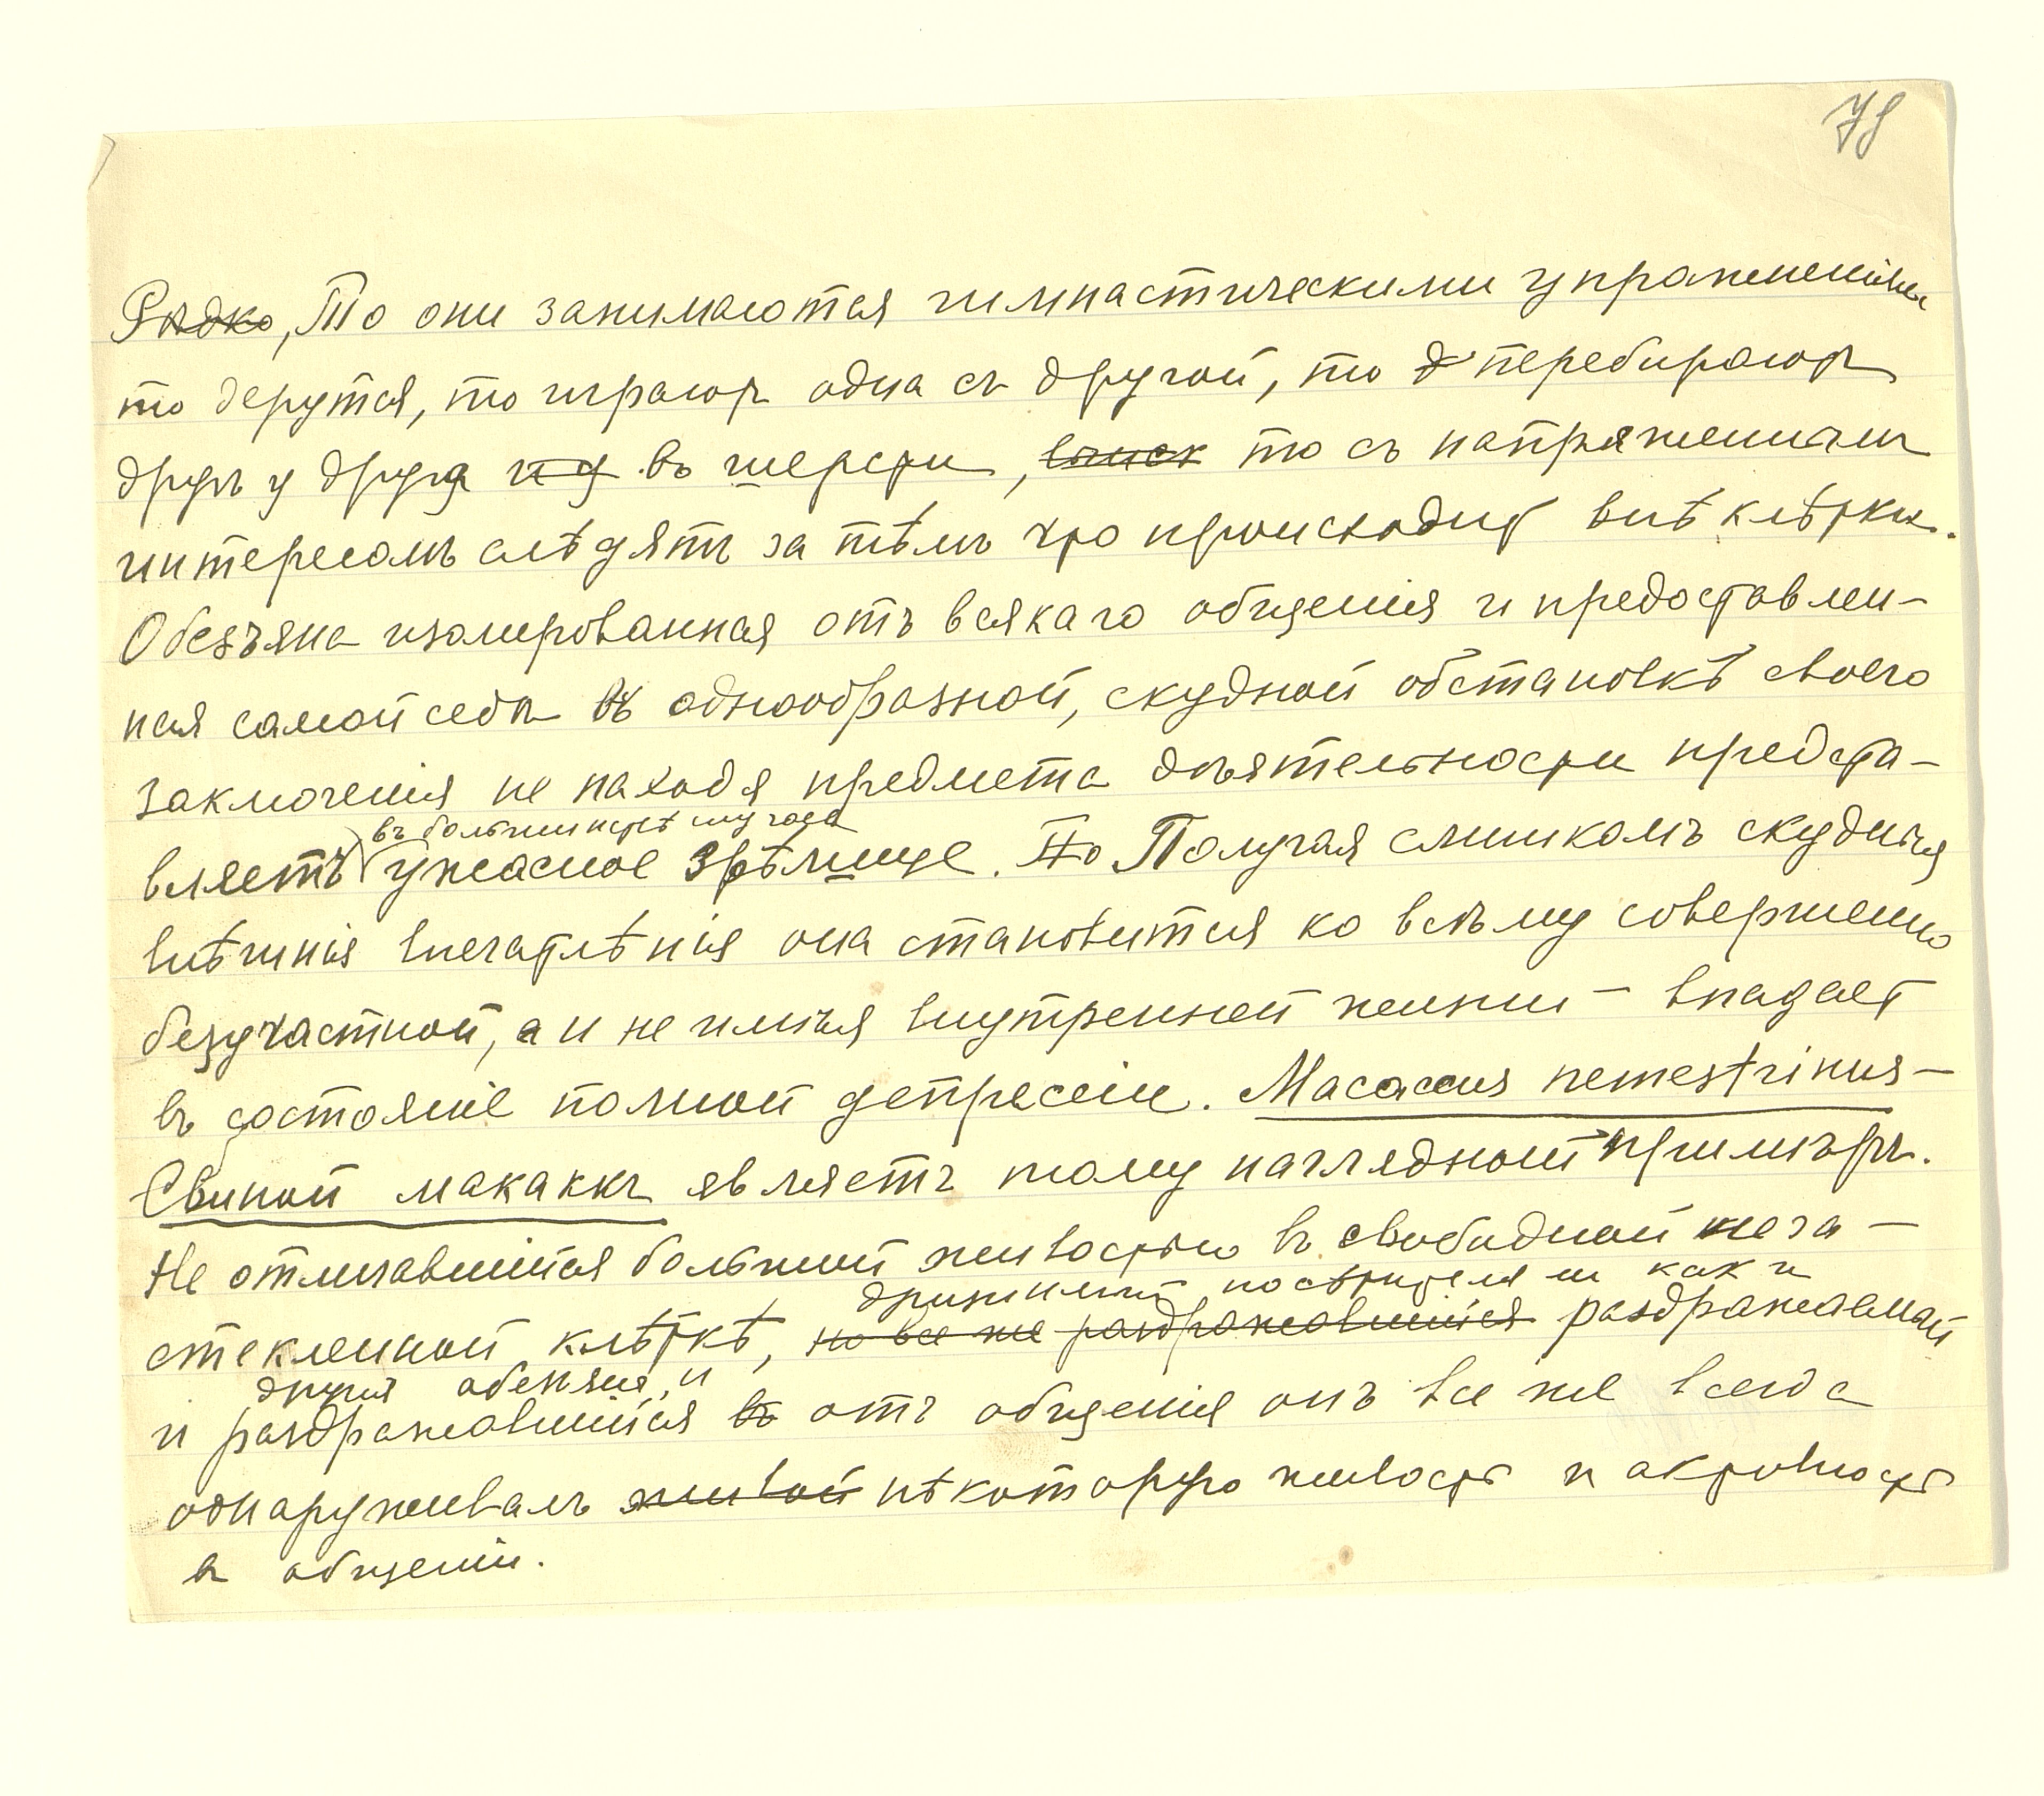 78
Рѣдко, То они занимаются гимнастическими упражненіями
то дерутся, то играютъ одна съ другой, то перебираютъ
другъ у друга въ шерсти, то съ напряженнымъ
интересомъ слѣдятъ за тѣмъ что происходитъ внѣ клѣтки.
Обезъяна изолированная отъ всякаго общенія и предоставлен-
ная самой себѣ въ однообразной, скудной обстановкѣ своего
заключенія не находя предмета дѣятельности предста-
въ большинствѣ случаевъ
вляетъ ужасное зрѣлище. Но Получая слишкомъ скудныя
внѣшнія впечатлѣнія она становится ко всѣму совершенно
безучастной, а и не имѣя внутренней жизни – впадаетъ
въ состояніе полной депрессіи. Macacus nemestrinus –
Свиной макаккъ являетъ тому наглядной примѣръ.
Не отличавшійся большой живостью въ свободной неза-
дразнимый посѣтителями какъ и
стекленной клѣткѣ, но все же раздражавшійся раздражаемый
другія обезьяны, и
и раздражавшійся въ отъ общенія онъ все же всегда
обнаруживалъ живой нѣкоторую живость и активность
въ общеніи.